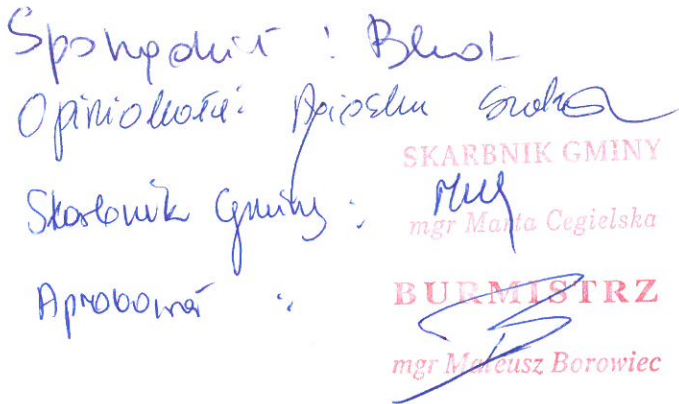 Sporządził :
Opiniował:
SKARBNIK GMINY
Skarbnik Gminy :
mgr Marta Cegielska
Aprobował :
BURMISTRZ
mgr Mateusz Borowiec